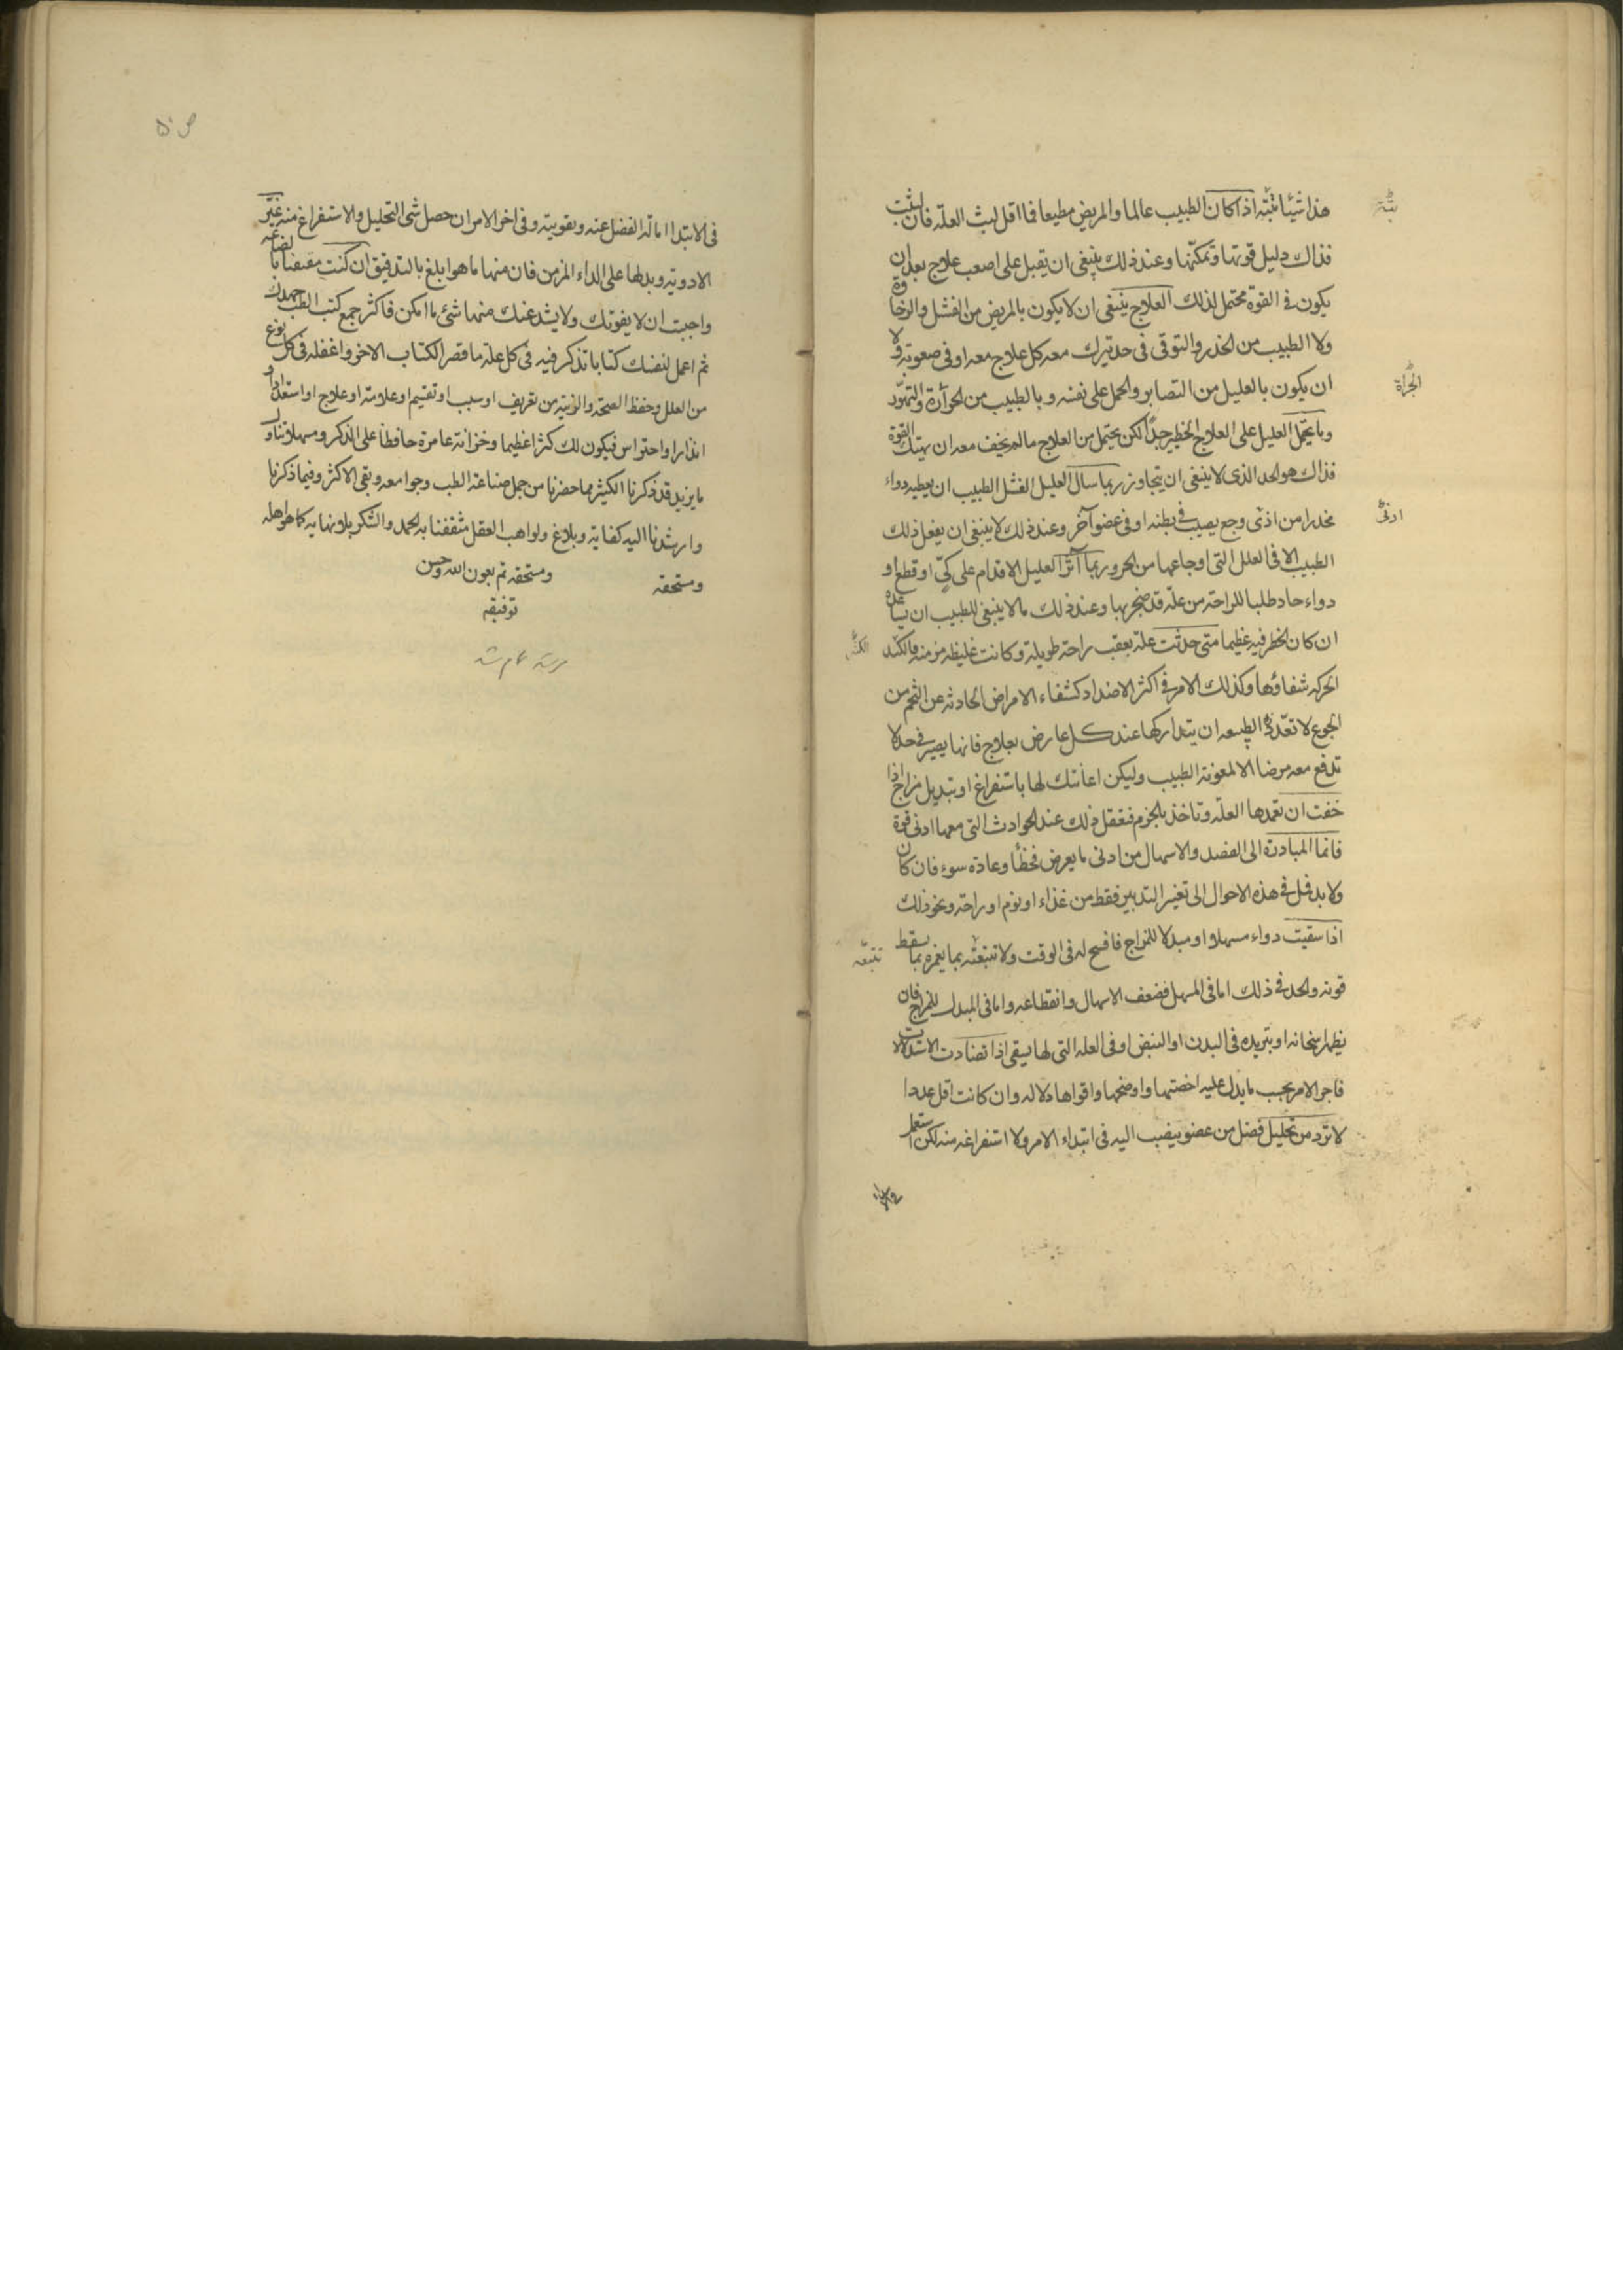 هذا شيئا بتّة اذا كان الطبيب عالما والمريض مطيعا فما اقل لبث العلة فان لبثت
فذاك دليل قوتها وتمكنها وعند ذلك ينبغى ان يقبل على اصعب علاج بعد ان
يكون فى القوة محتمل لذلك العلاج ينبغى ان لا يكون بالمريض من الفشل والرخاوة
ولا الطبيب من الحذر والتوقى فى حد يترك معه كل علاج معه او فى صعوبة ولا
ان يكون بالعليل من التصابر والحمل على نفسه وبالطبيب من الجرأة والتهوّر
وبا يحمل العليل على العلاج الخطير جدّا لكن يحتمل من العلاج ما لم يخف معه ان يهتك القوة
فذاك هو الحد الذى لا ينبغى ان يتجاوز ربما سال العليل الفشل الطبيب ان يعطيه دواء
مخدرا من اذى وجع يصيب فى بطنه او فى عضو آخر وعند ذلك لا ينبغى ان يفعل ذلك
الطبيب الا فى العلل التى اوجاعها من الحر وربما آثر العليل الاقدام على كىّ او قطع او
دواء حاد طلبا للراحة من علة قد ضجر بها وعند ذلك ما لا ينبغى للطبيب ان يساعده
ان كان الخطر فيه عظيما متى حدثت علة بعقب راحة طويلة وكانت غليظة مزمنة فالكد
الحركة شفاؤها وكذلك الامر فى اكثر الاضداد كشفاء الامراض الحادثة عن التخم من
الجوع لا تعوّد الطبيعة ان يتداركها عند كل عارض بعلاج فانها يصير فى حد لا
تدفع معه مرضا الا لمعونة الطبيب وليكن اعانتك لها باستفراغ او تبديل مزاج اذا
خفت ان تغمدها العلة وتاخذ بالحزم فتفعل ذلك عند الحوادث التى معها ادنى قوة
فانما المبادرة الى الفصد والاسهال من ادنى ما يعرض فخطأ وعادة سوء فان كان
ولا بد فمل فى هذه الاحوال الى تغيير التدبير فقط من غذاء او نوم او راحة ونحو ذلك
اذا سقيت دواء مسهلا او مبدلا للمزاج فافسح له فى الوقت ولا تتبعه بما يغمره بما يسقط
قوته والحد فى ذلك اما فى المسهل فضعف الاسهال وانقطاعه واما فى المبدل للمزاج فان
يظهر اسخانه او تبريده فى البدن او النبض او فى العلة التى لها يسقى اذا تضادت الاستدلالات
فاجر الامر بحسب ما يدل عليه اخصتها واوضحها واقواها دلالة وان كانت اقل عددا
لا ترد من تحليل فضل من عضو ينصب اليه فى ابتداء الامر ولا استفراغه منه لكن استعمل
بتّة
الجرأة
ادنى
تتبعه
فى الابتدا امالة الفضل عنه وتقويته وفى اخر الامر ان حصل شى التحليل والاستفراغ منه غيّر
الادوية وبدلها على الداء المزمن فان منها ما هو ابلغ بالتدقيق ان كنت بالصناعة
واجبت ان لا يفوتك ولا يشد عنك منها شئ ما امكن فاكثر جمع كتب الطب جهدك
ثم اعمل لنفسك كتابا تذكر فيه فى كل علة ما قصر الكتاب الاخر واغفله فى كل نوع
من العلل وحفظ الصحة والزينة من تعريف او سبب او تقسيم او علامة او علاج او استعداد او
انذار او احتراس فيكون لك كنزا عظيما وخزانة عامرة حافظا على الذكر ومسهلا تناول
ما يزيد قد ذكرنا الكثير مما حضرنا من جمل صناعة الطب وجوامعه وبقى الاكثر وفيما ذكرنا
وارشدنا اليه كفاية وبلاغ ولواهب العقل مثقفنا به الحمد والشكر بلا نهاية كما هو اهله
ومستحقه ومستحقه تم بعون الله وحسن
توفيقه